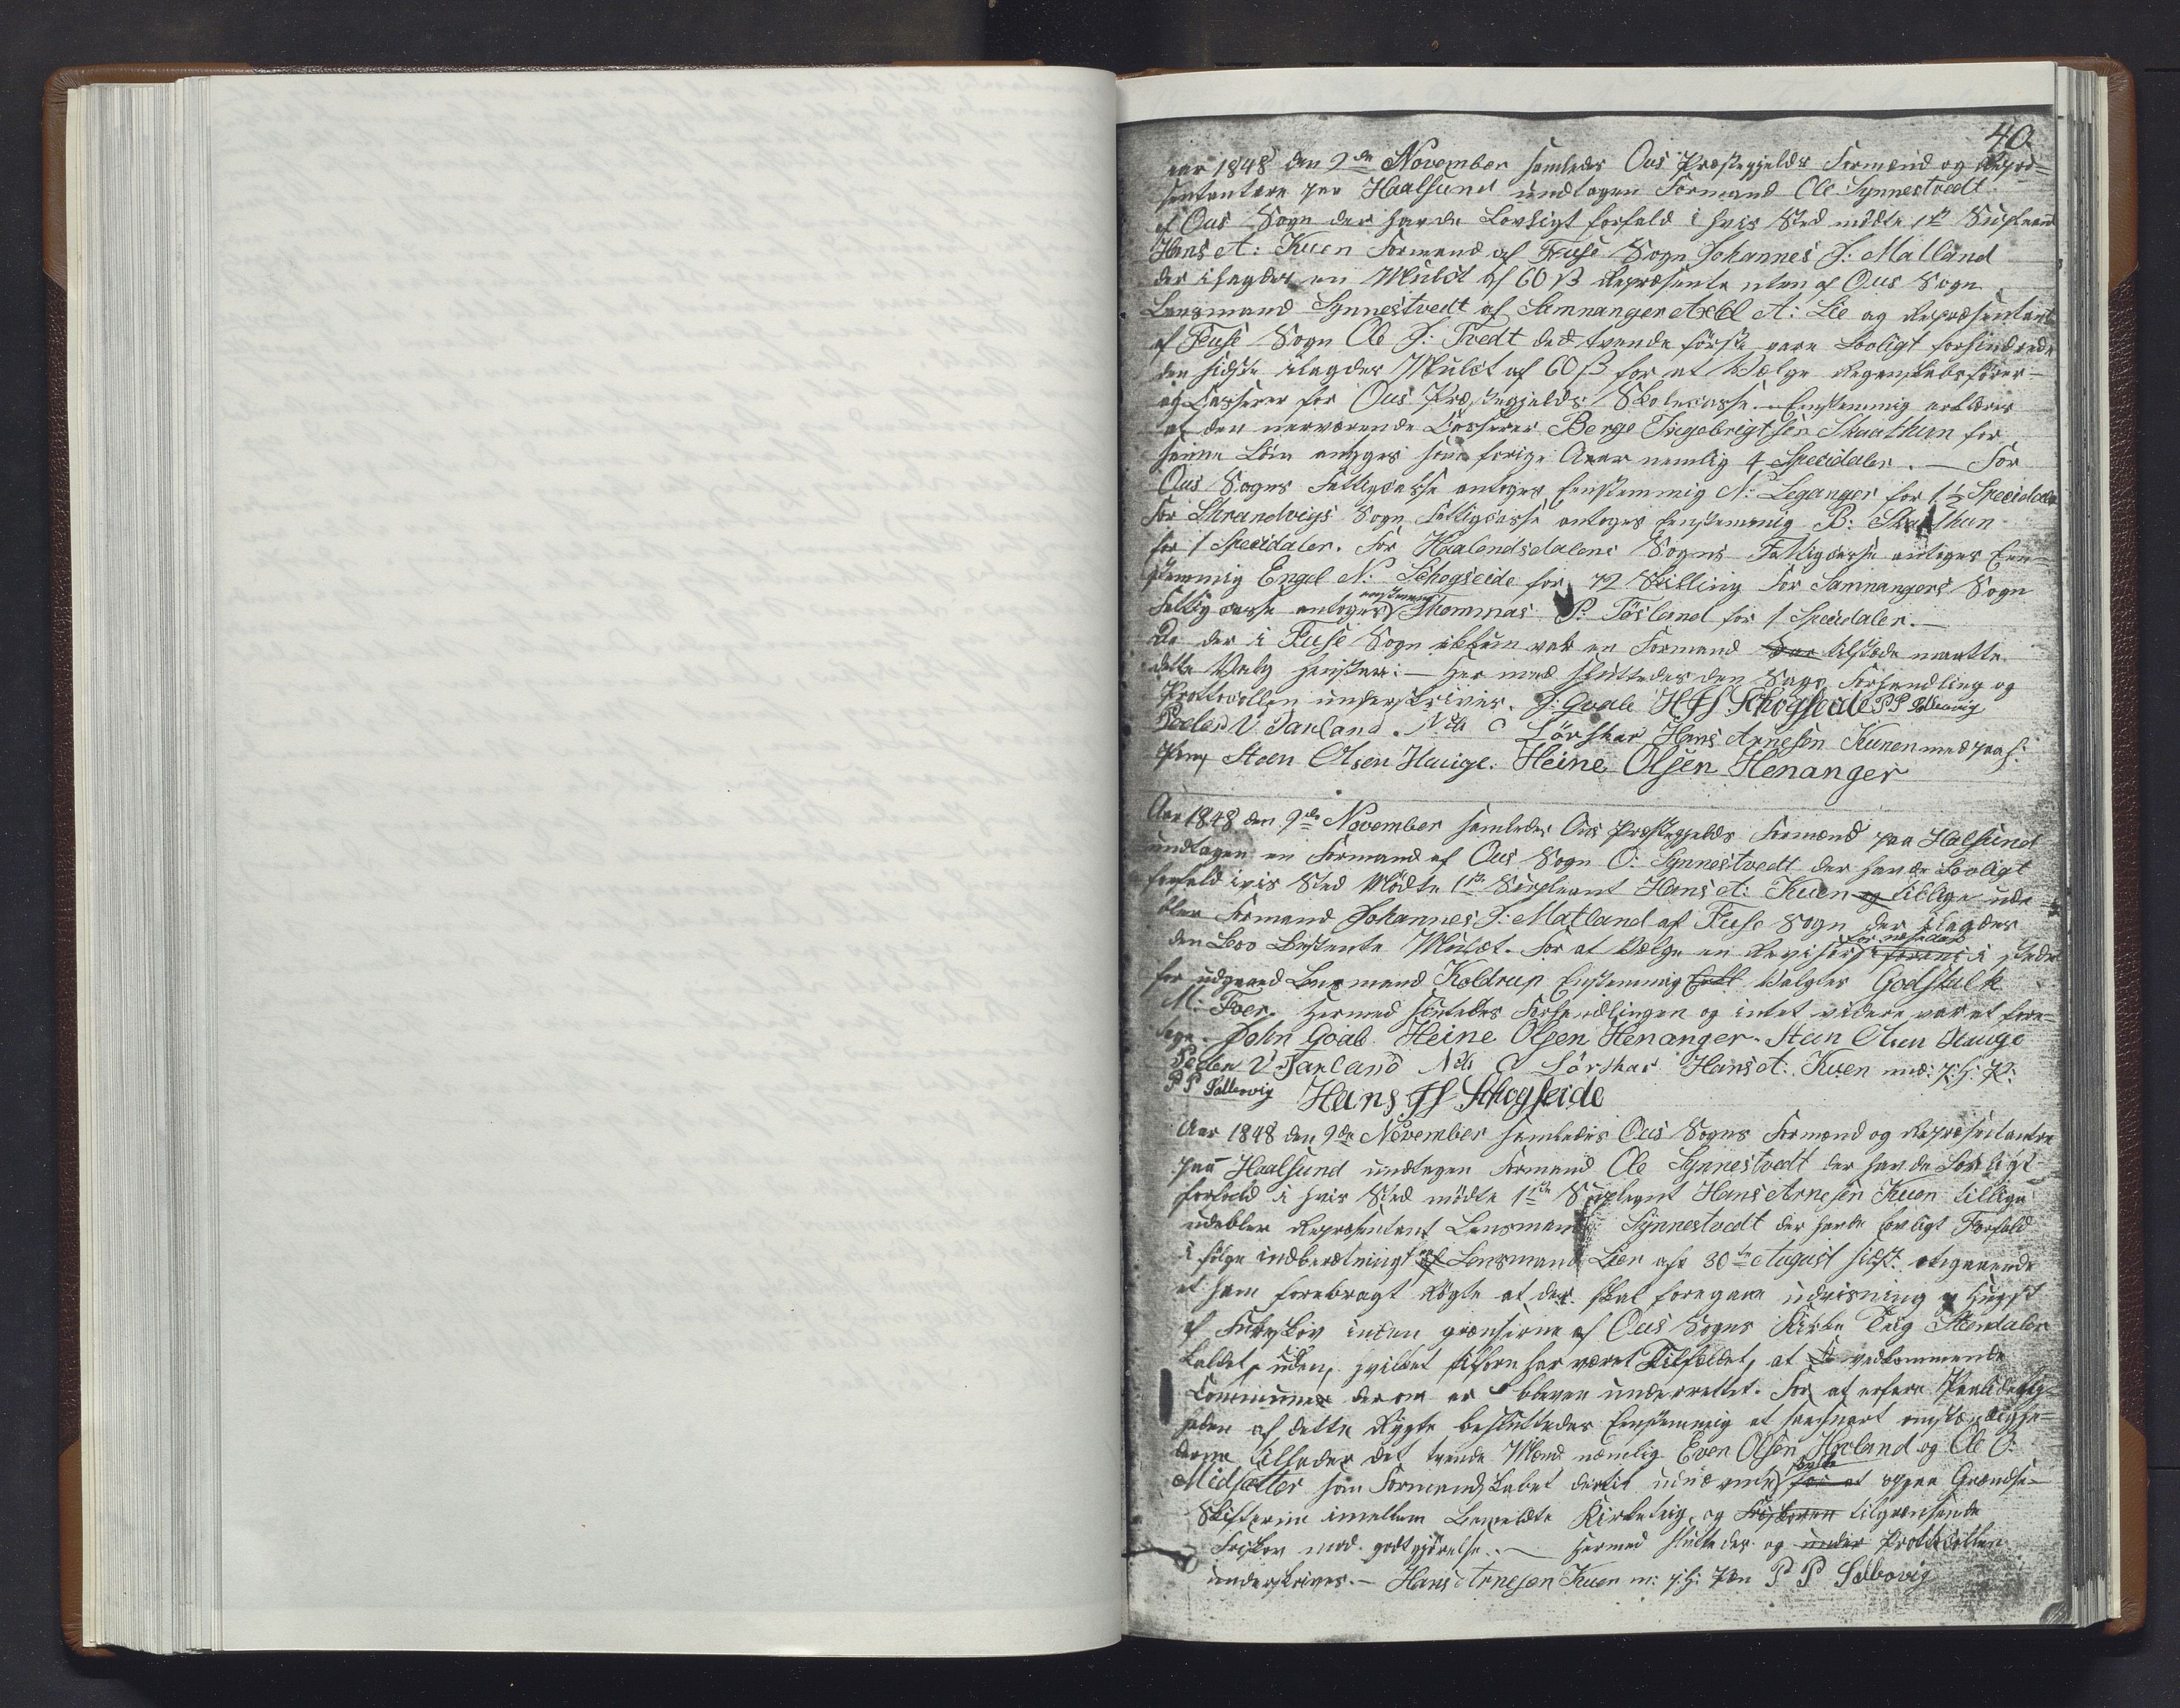 40.
Aar 1848 den 9de November samledes Ous Præstegjelds Formænd og Repræ=
sentantere paa Haalsund undtagen Formand Ole Synnestvedt
af Ous Sogn der havde Lovligt forfald i hvis Sted mödte 1ste Supleant
Hans A: Kuen Formand af Fuse Sogn Johannes J: Matland
der ilagdes en Mulct af 60 ß Repræsentanten af Ous Sogn
Lensmand Synnestvedt af Samnanger Axel A: Lie og Repræsentant
af Fuse Sogn Ole J: Tvedt de tvende förste vare Lovligt forhindrede
den sidste ilagdes Mulct af 60 ß for at Vælge Regenskabsförer
og Casserer for Ous Præstegjelds Skolecasse. Eenstemmig erklæres
at den nerværende Casserer Berge Ingebrigtsen Skaathun for
samme Lön antages som forige Aaar nemlig 4 Specidaler. — For
Ous Sogns Fattigcasse antoges Eenstemmig N: Leganger for 1½ Specidaler
For Strandvigs Sogn Fattigcasse antoges Eenstemmig B: Skaathun
for 1 Specidaler. For Haalendsdalens Sogns Fattigcasse antoges Een=
stemmig Engel N: Schogseide for 72 Skilling For Samnangers Sogn
Fattigcasse antoges eenstemmig Thommas P. Tösland for 1 Specidaler. —
Da der i Fuse Sogn ikkun var en Formand var tilstæde maatte
dette Valg henstaae: — Her med sluttedes den Sags Forhandling og
Protocollen underskrives. J: Goale H H S Schogseide P P Solbovig
Peder V Janland. Nils O Lörskar Hans Arnesen Kunen med paah:
Pen Steen Olsen Hauge. Heine Olsen Henanger
Aar 1848 den 9de November samledes Ous Præstegjelds Formænd paa Halsund
undtagen en Formand af Ous Sogn O: Synnestvedt der havde Lovligt
forfald ivis Sted Mödte 1ste Supleant Hans A: Kuen og tillige ude
blev Formand Johannes J: Matland af Fuse Sogn der ilagdes
den Lov Bestemte Mulct. For at Vælge en Revisor for nestedes i stedet
for udgaaed Lensmand Koldrup Enstemmig Valgtes Godskalk
M: Tver. Hermed sluttedes Forhandlingen og intet videre var at fore=
tage. John Goale Heine Olsen Henanger. Steen Olsen Hauge
Peder V Janland Nils O Lörskar Hans A. Kuen med: p: h: P:
P P Solbovig Hans H S Schogseide
Aar 1848 den 9de November samledes Ous Sogns Formænd og Repræsentantere
paa Haalsund undtagen Formand Ole Synnestvedt der havde Lovligt
forfald i hvis Sted mödte 1ste Supleant Hans Arnesen Kuen tillige
udeblev Repræsentant Lensmand Synnestvedt der havde lovligt Forfald
i fölge indberetning fra Lensmand Lien af 30te August sidst. angaaende
et ham forebragt Rögte at der skal foregaae udvisning og Hugst
af Furuskov inden grænserne af Ous Sogns Kirke Teig Stendalen
kaldet, uden, hvilket tilforn har været Tilfældet, at vedkommende
Communes derom er bleven underrettet. For at erfare Paalidelig=
heden af dette Rygte besluttedes Eenstemmig at saasnart omstændighe=
derne tillader det tvende Mænd nemlig Even Olsen Havland og Ole O:
Midsætter som Formandskabet dertil udnævnte skulle for at opgaa Grændse
Skifterne imellem bemeldte Kirketeig, og Friskoven tilgrænsende
Friskov mod godtgjörelse. — Hermed sluttedes og under Protocollen
underskrives. — Hans Arnesen Kuen m: p: h: Pen P P Solbovig